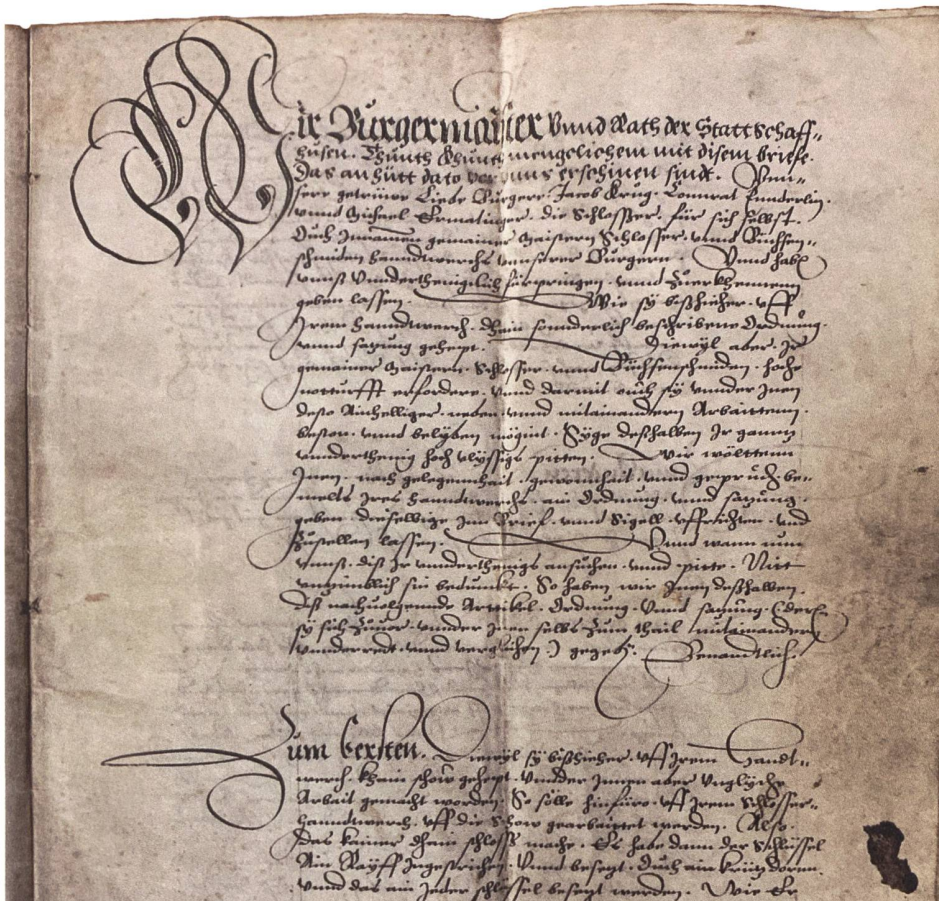 Wir Burgermaister Vnnd Rath der Statt Schaff-
husen. Thunth khunth mengclichem mit disem briefe.
Das an hütt dato vor vnns erschinen sindt. Vnn-
sere getrüwe Liebe Burgere. Jacob Krug. Connrat Funderlin.
vnnd Michael Ermatinger. die Schlosser. für sich selbst.
Ouch Innamen gemainer Maistern Schlosser. vnnd Büchsen-
schmiden hanndtwerchs vnnserer Burgern. Vnnd habe
vnns Vnnderthenigklich fürpringen. vnnd Zuerkhennenn
geben lassen. Wie sy bißhieher. vff
Irem hanndtwerch. dhain sonderlich beschribene Ordnung.
vnnd satzung gehept. Diewyl aber. Ir
gemainer Maistern. Schlosser. vnnd Büchsenschmiden. hohe
notturfft erfordere. Vnnd darmit ouch sy vnnder Inen
dester Ainhelliger. neben. vnnd mitainandern Arbaittenn.
beston. vnnd belyben mögint. Syge deßhalben Ir gantz
vnnderthenig hoch vlyssigs pitten. Wir wölttenn
Inen. nach gelegenhait. gewonhait. vnnd geprüch be-
melts Ires hanndtwerchs. ain Ordnung. vnnd satzung.
geben. dieselbige Inn Brief. vnnd Sigell. vffrichten. vnd
Zustellen lassen. Vnnd wann nun
vnns. diß Ir vnnderthenigs ansuchen. vnnd pitte. Nitt
vnzimblich sin bedunkt. So haben wir Inen deßhalben.
Diß nachuolgennde Artikel. Ordnung. Vnnd satzung. (deren
sy sich Zuuor. vnnder Inen selbs Zum theil mitainandern
vnnderredt. vnnd verglichen.) gegeben. Benandtlich.
Zum Ersten. Diewyl sy bißhieher. vff Irem Handt-
werch. khain schow gehept. vnnder Innen aber Vnglyche
Arbait gemacht worden. So sölle hinfüro. vff Irem Schlosser-
hanndtwerch. vff die Schow gearbaittet werden. Also.
Das kainer dhain schloss mache. Es habe dann der Schlüssel
Ain Rayff Ingestrichen. Vnnd besetzt. Ouch ain krütz dorinn.
Vnnd das ain Jeder schlüssel besetzt werden. Wie Er